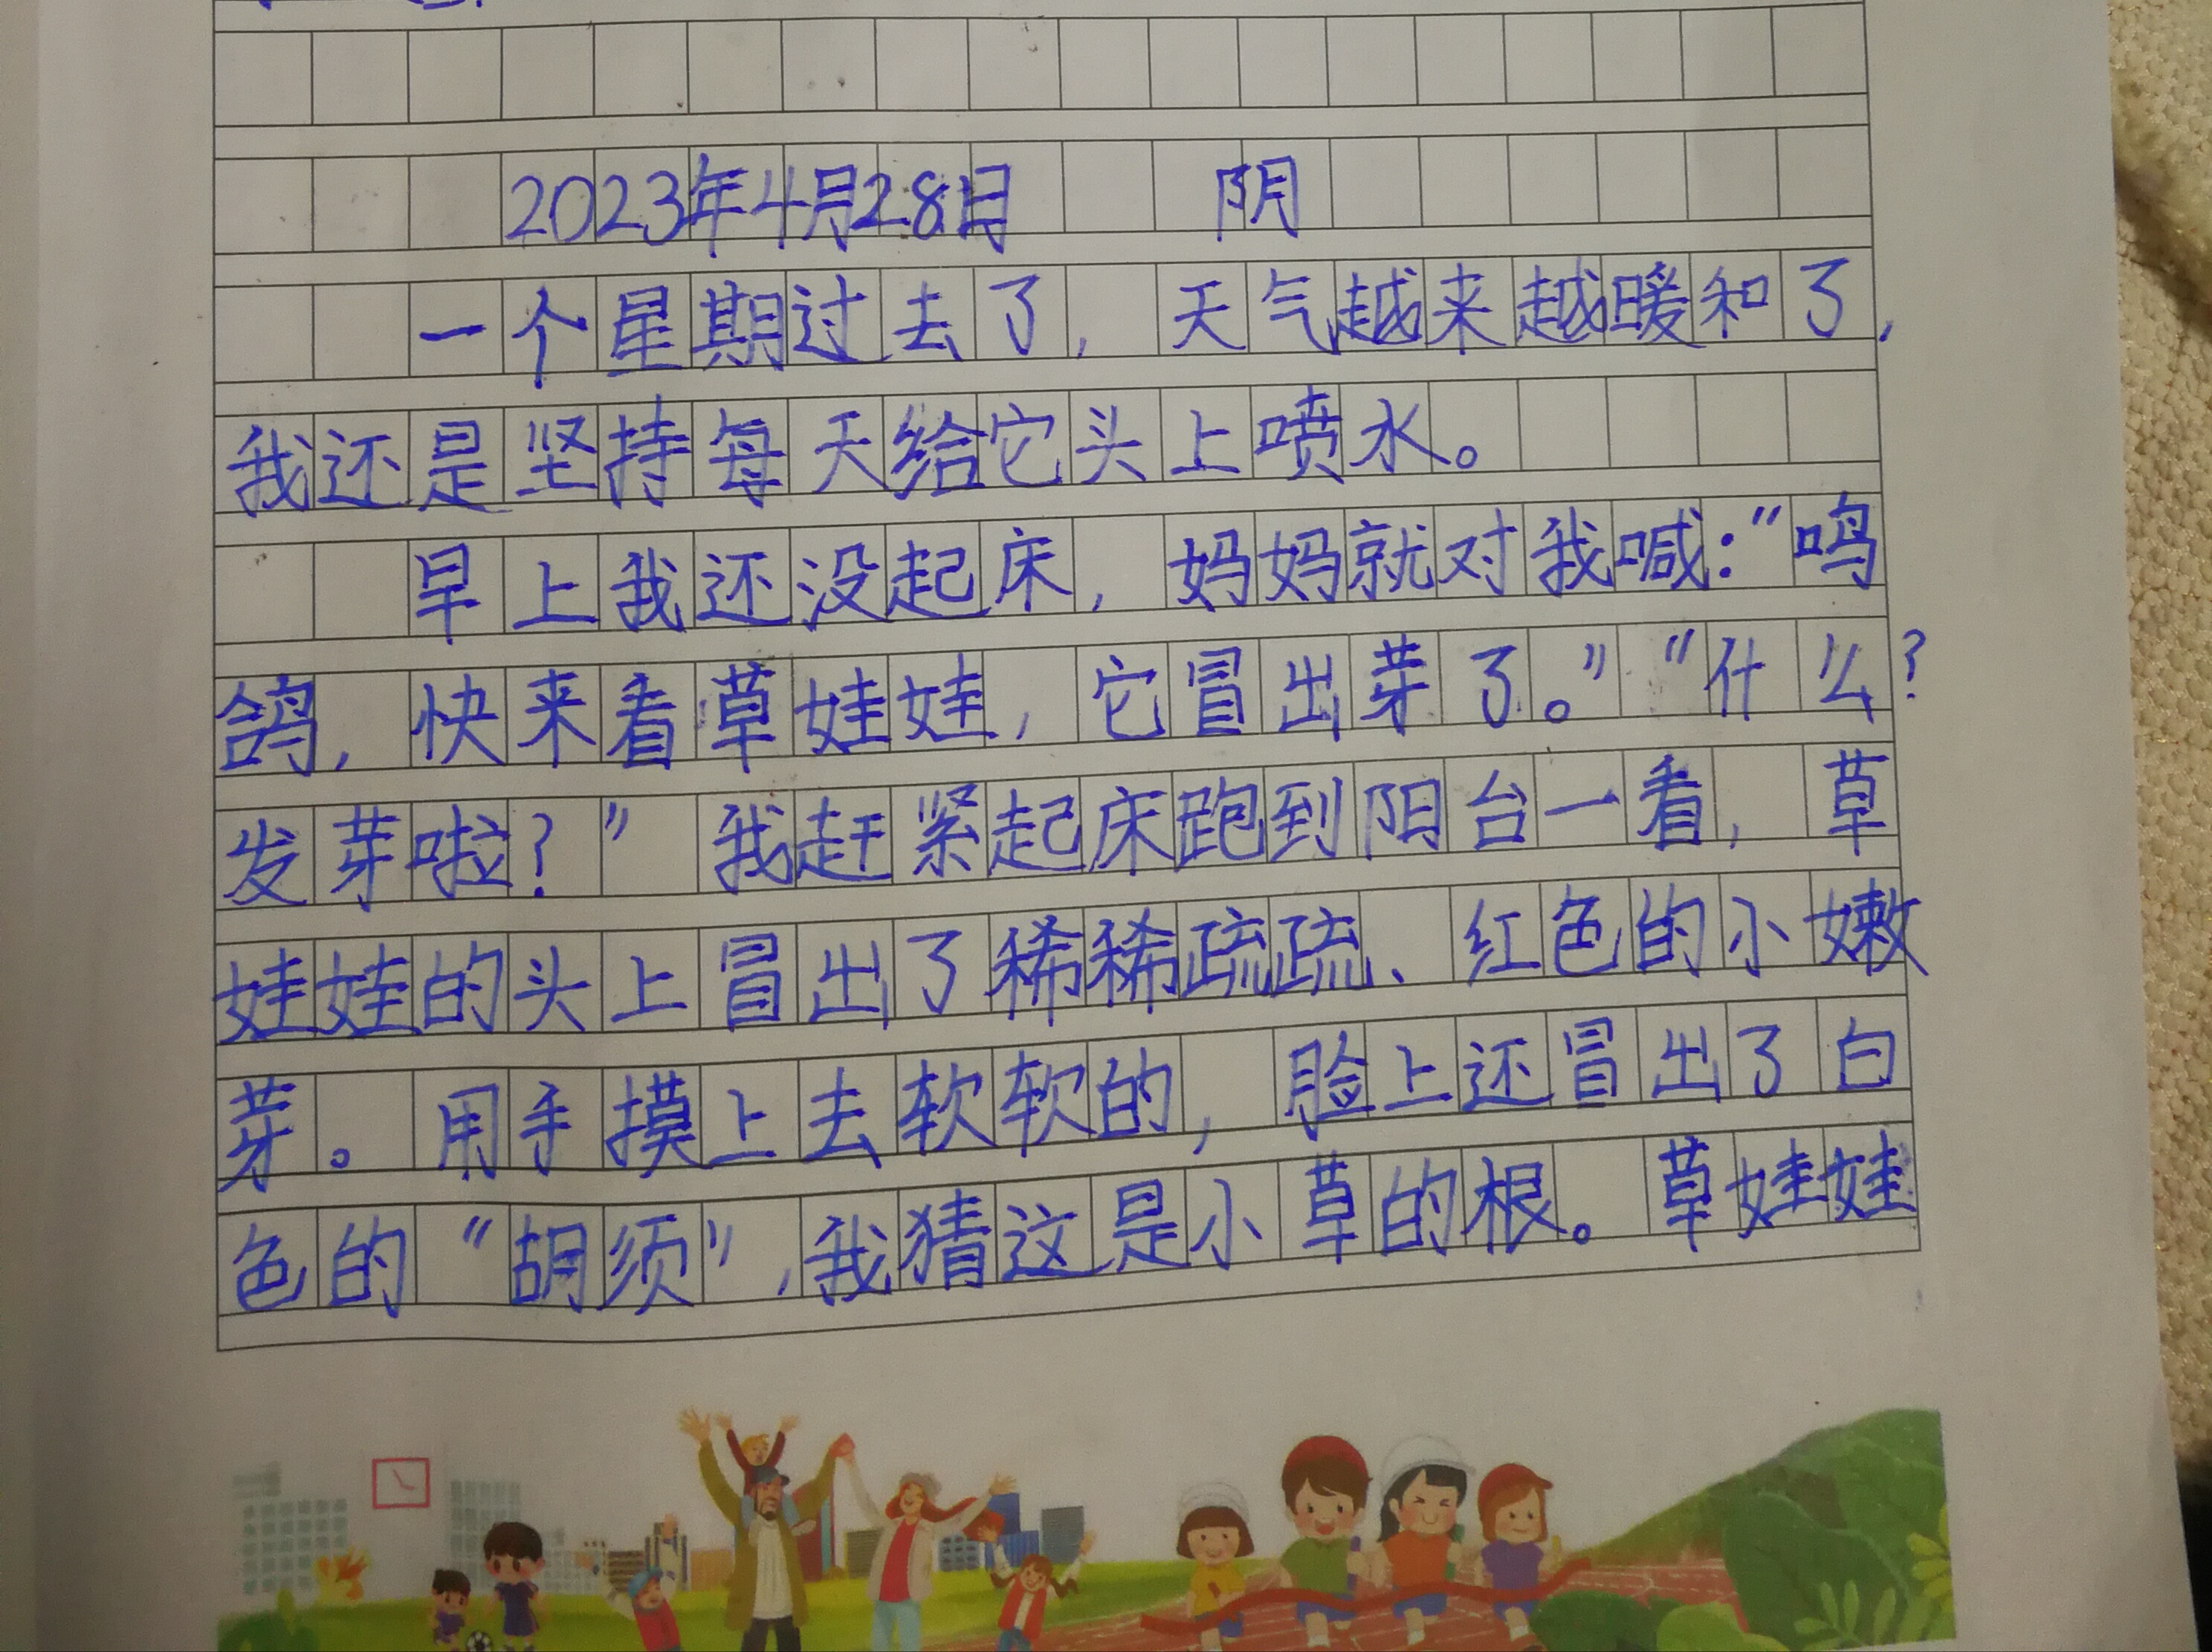 2023年4月28日 阴
一个星期过去了,天气越来越暖和了,
我还是坚持每天给它头上喷水。
早上我还没起床,妈妈就对我喊:"鸣
鸽,快来看草娃娃,它冒出芽了。""什么?
发芽啦?"我赶紧起床跑到阳台一看,草
娃娃的头上冒出了稀稀疏疏、红色的小嫩
芽。用手摸上去软软的,脸上还冒出了白
色的"胡须",我猜这是小草的根。草娃娃